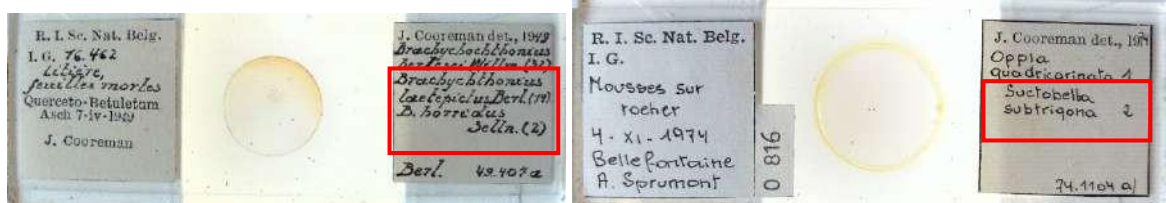 R. I. Sc. Nat. Belg.
I. G. 76.462
Litière,
feuilles mortes
Querceto-Betuletum
Asch 7-iv-1949
J. Cooreman
J. Cooreman det., 1949
Brachychochthonius
Brachychthonius
laetepictus Berl. (19)
B. horridus
Selln. (2)
Berl. 49.407a
R. I. Sc. Nat. Belg.
I. G.
Mousses sur
rocher
4-XI-1974
Bellefontaine
A. Sprumont
O 816
J. Cooreman det., 19
Oppia
quadricarinata 1
Suctobelba
subtrigona 2
74.1104 a